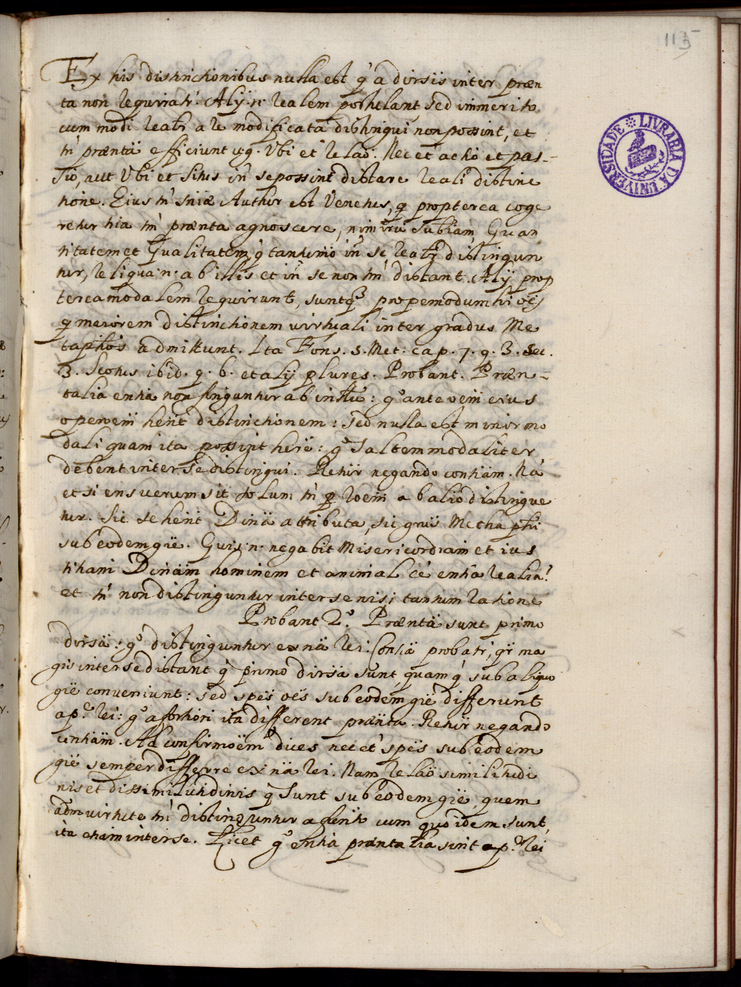 115
LIVRARIA DA UNIVERSIDADE
Ex his distinctionibus nulla est q̃ a diversis inter præn
ta non requiratr. Alij .n. realem postulant sed immerito
cum modi reatr a re modificata distingui non possint, et
tn̄ prænta efficiunt v.g. Ubi et relaō. Nec et actio et pas-
sio, aut Ubi et situs in se possint distare reali distinc
tione. Eius tn̄ sniæ Author est Venetus, q propterea coge
retur tria tn̄ prænta agnoscere, nimirũ Subiam Quan
titatem et Qualitatem q̃ tantum in se realr distingun
tur, reliqua .n. ab illis et in se non tn̄ distant. Alij prop
terea modalem requirunt, suntq̃ propemodum hi oēs
q maiorem distinctionem virtuali inter gradus Me
taphos admittunt. Ita Fons. 5. Met. cap. 7. q. 3. sec.
3. Scotus ibid. q. 6. et alij plures. Probant. Præn-
talia entia non finguntur ab intũ: gº ante oem eius
operoem hent distinctionem: sed nulla est minor mo
dali quam ita possint here: gº saltem modaliter
debent inter se distingui. Retur negando contiam. Na
et si ens verum sit solum tn̄ p roem ab alio distingue
tur. Sic se hent Dina attributa, sic grus Metaphi
sub eodem gie. Quis .n. negabit Misericordiam et ius
titiam Dinam hominem et animal eē entia realia?
et tn̄ non distinguntur inter se nisi tantum ratione
Probant 2º. Prænta sunt primo
dirsa: gº distinguntur ex nā rei. Consa probatr, qr ma
gis inter se distant q̃ primo dirsa sunt quam q̃ sub aliquo
gie conveniunt: sed spes oēs sub eodem gie differunt
a p. rei: gº a fortiori ita different prænta. Retur negando
contiam. Ad confirmoem dices nec et speis sub eodem
gie semper differre ex nā rei. Nam relao similitudi
nis et dissimilitudinis q̃ sunt sub eodem gie, quem
admodum tn̄ distinguntur a funto cum quo idem sunt,
ita etiam inter se. Licet gº entia præntalia sint a p. rei